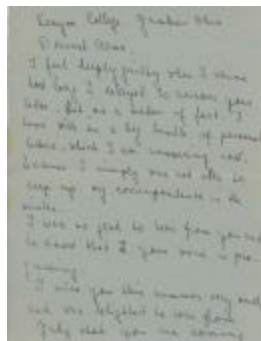 Kenyon College Gambier Ohio
Dearest
I feel deeply guilty when I
how long I delayed to answer your
letter. But as a matter of fact I
have with me a big bundle of personal
letters, which I am answering now,
because I simply was not able to
keep up my correspondence in the
I was so glad to hear from you and
to know that your voice is pro-
I miss you this summer very much
and was delighted to hear from
that you are coming